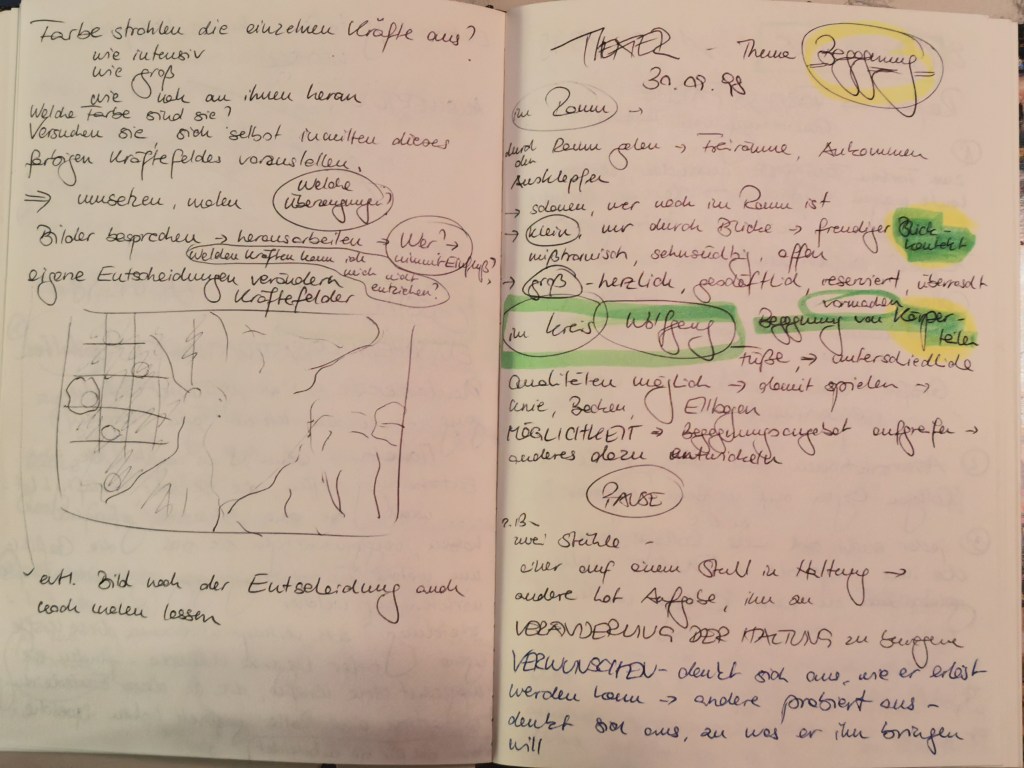 Farbe strahlen die einzelnen Kräfte aus?
wie intensiv
wie groß
wie nah an ihnen heran
Welche Farbe sind sie?
Versuchen sie, sich selbst inmitten dieses
farbigen Kräftefeldes vorzustellen.
⇒ umsetzen, malen Welche Überzeugung?
Bilder besprechen → herausarbeiten → Wer? →
nimmt Einfluß?
Welchen Kräften kann ich
mich nicht
entziehen?
eigene Entscheidungen verändern
Kräftefelder
evtl. Bild nach der Entscheidung auch
noch malen lassen
THEATER - Thema Begegnung
im Raum →
durch den Raum gehen → Freiräume, Ankommen
Ausklopfen
→ schauen, wer noch im Raum ist
→ klein, nur durch Blicke → freudiger Blick-
kontakt
mißtrauisch, sehnsüchtig, offen
→ groß - herzlich, geschäftlich, reserviert, überrascht
vormachen
im Kreis Wolfgang Begegnung von Körper-
teilen
Füße, → unterschiedliche
Qualitäten möglich → damit spielen →
Knie, Becken, Ellbogen
MÖGLICHKEIT → Begegnungsangebot aufgreifen →
anderes dazu entwickeln
PAUSE
z.B.
zwei Stühle -
einer auf einem Stuhl in Haltung →
andere hat Aufgabe, ihn zu
VERÄNDERUNG DER HALTUNG zu bewegen
VERWUNSCHEN - denkt sich aus, wie er erlöst
werden kann → andere probiert aus -
denkt sich aus, zu was er ihn bringen
will